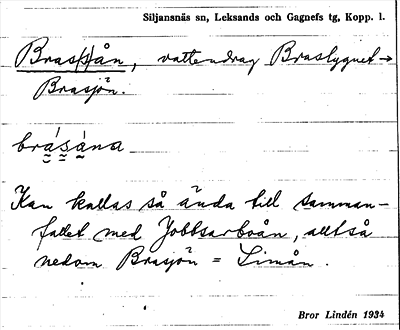 Siljansnäs sn, Leksands och Gagnefs tg, Kopp. l.
Bras(s)ån, vattendrag Braslygnet →
Brasjön.
brásána
Kan kallas så ända till samman-
fallet med Jobbsarboån, alltså
nedom Brasjön = Limån.
Bror Lindén 1934